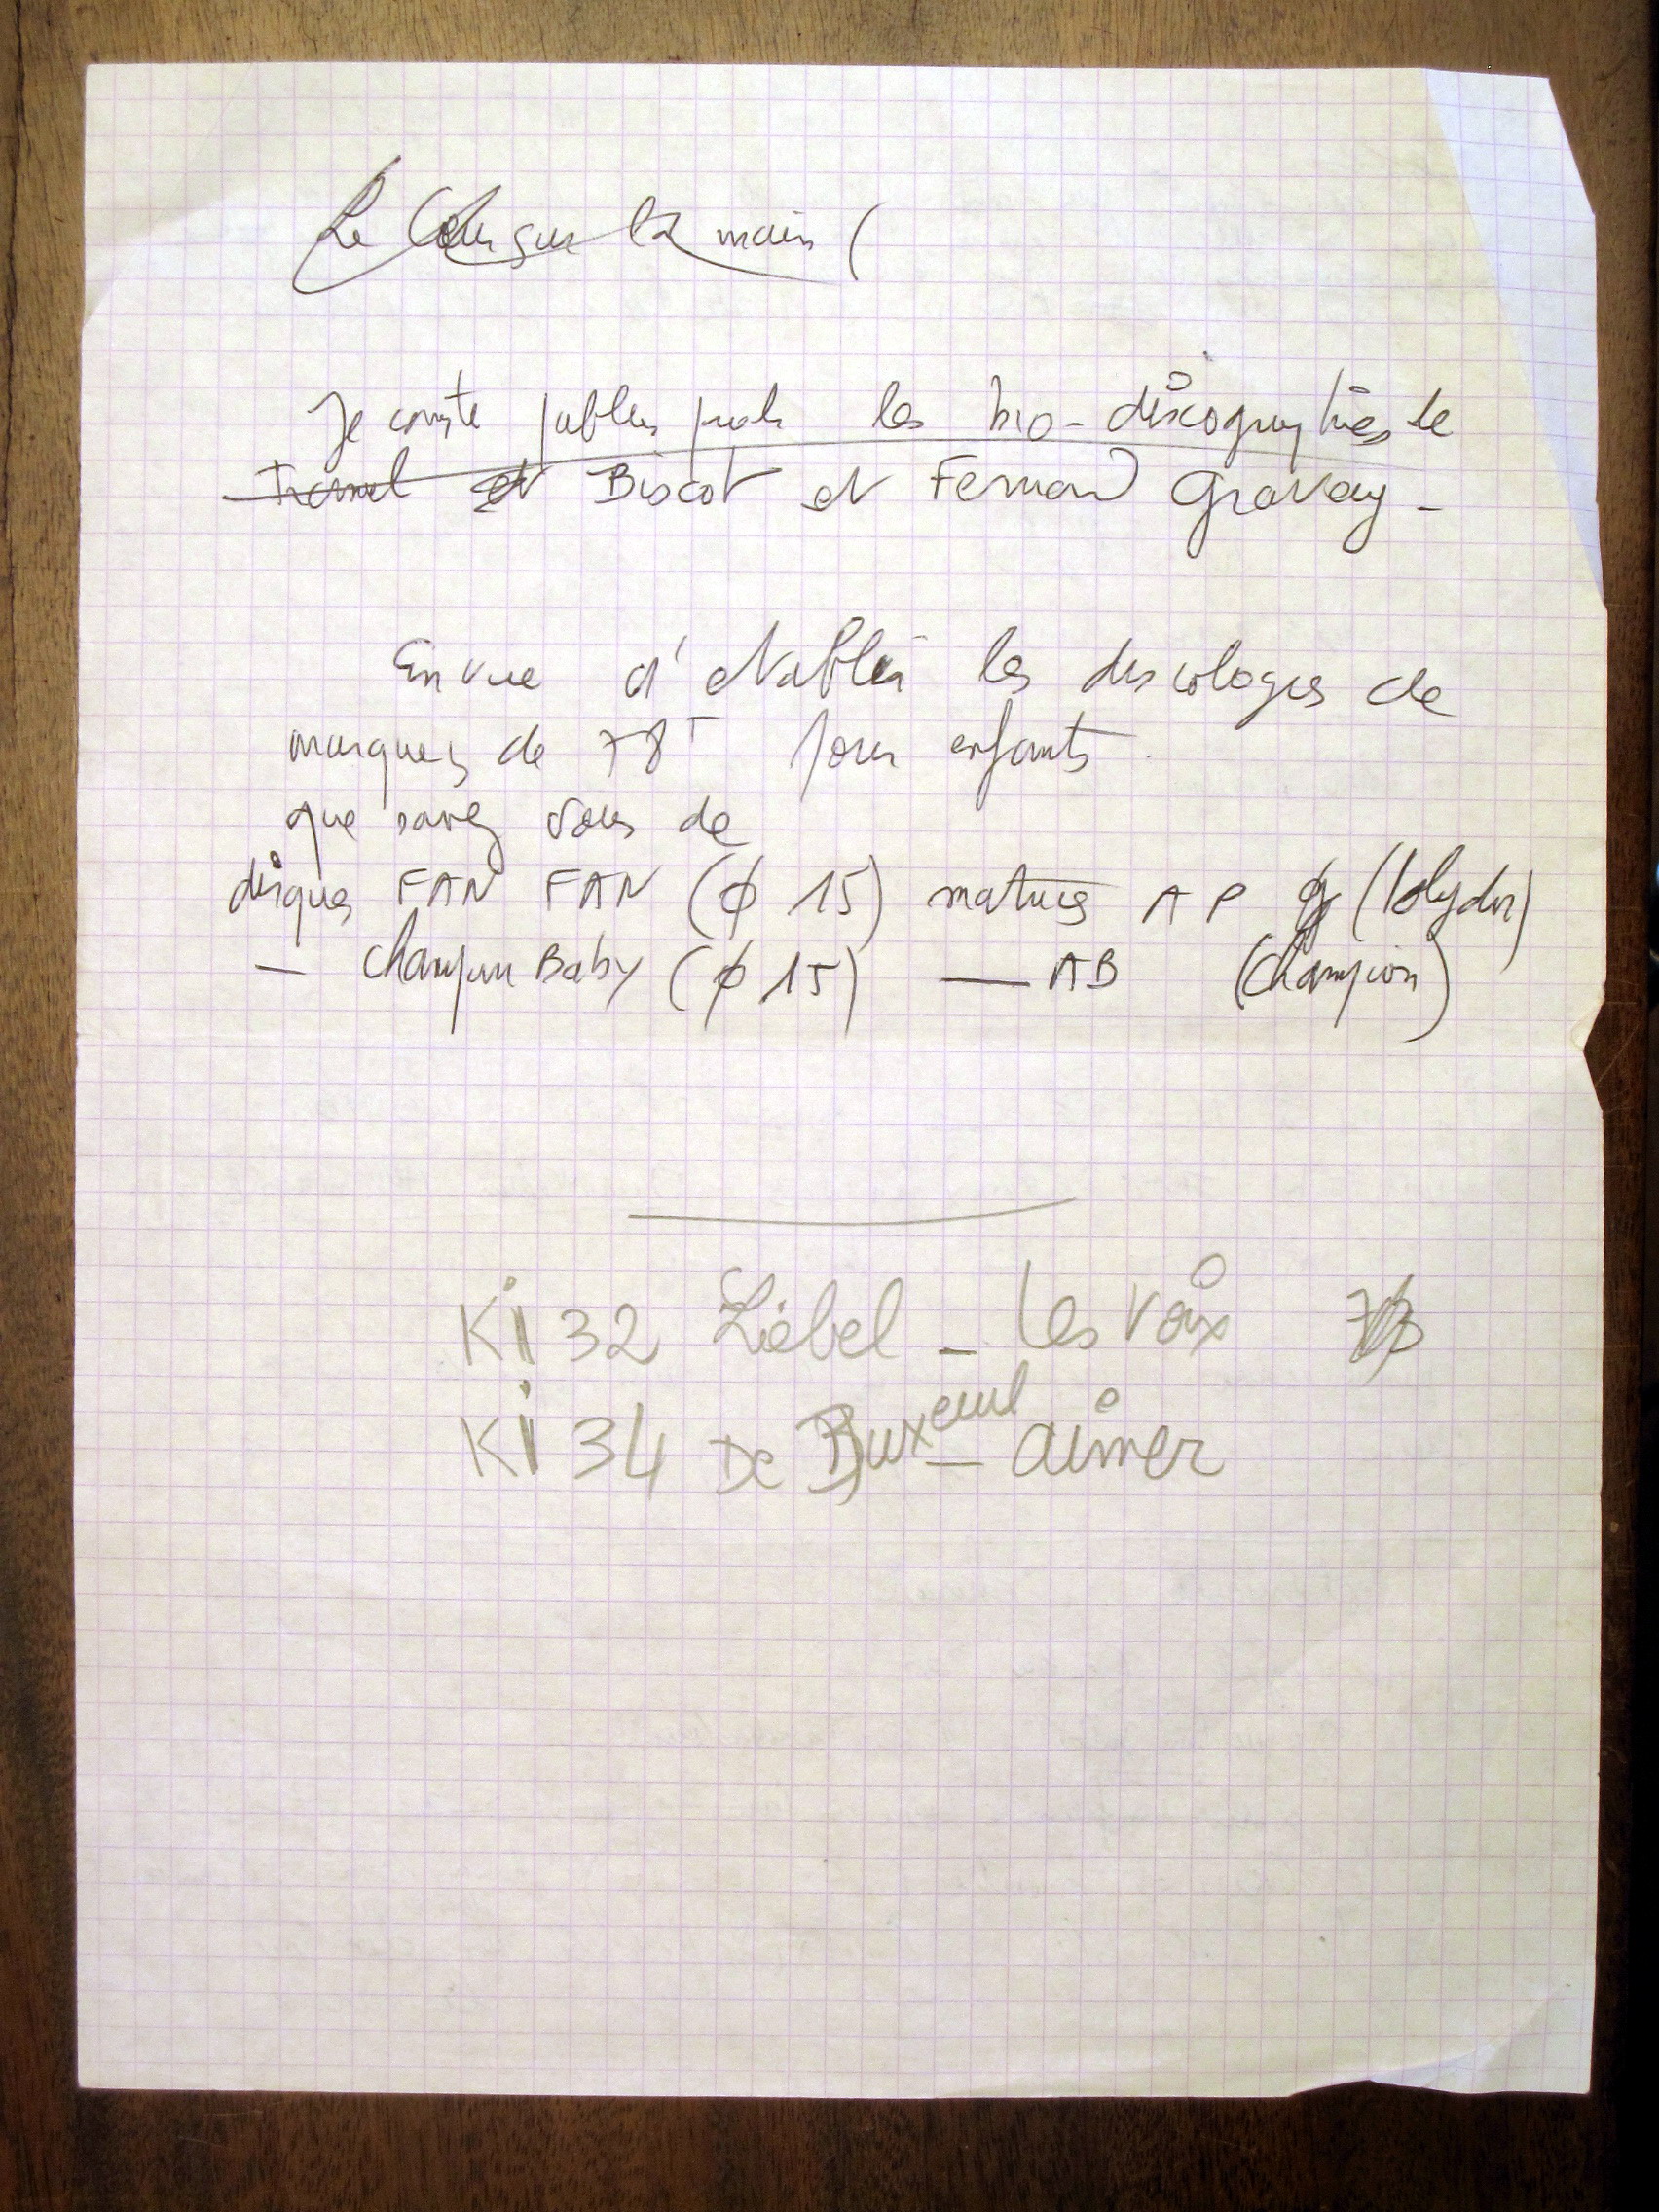 Le Cœur sur la main (
Je compte publier les bio-discographies de
et Biscot et Fernand Gravey -
En vue d'établir les discologies de
marques de 78T pour enfants.
que savez vous de
disques FAN FAN (ϕ 15) matrices AP (Polydor)
— Champion Baby (ϕ 15) — AB (Champion)
Ki 32 Liebel - Les Voix 78
Ki 34 De Buxeuil - aimer